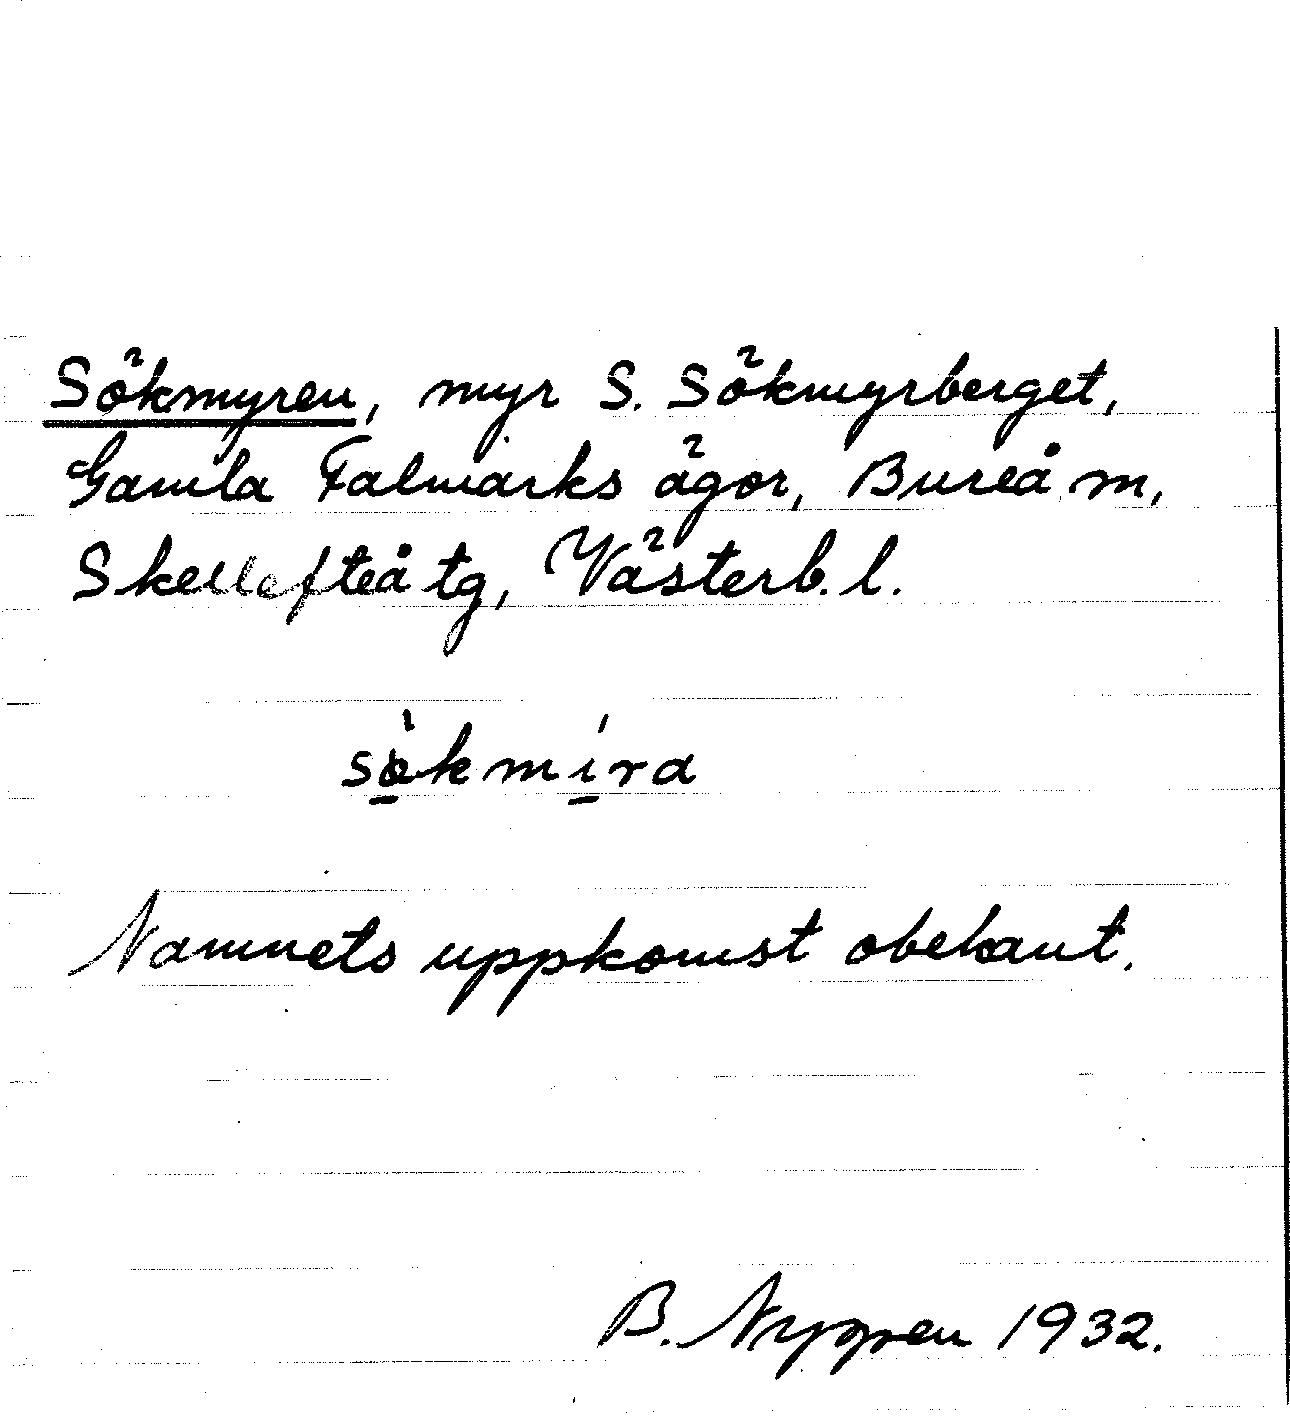 Sökmyren, myr S. Sökmyrberget,
Gamla Falmarks ägor, Bureå m,
Skellefteå tg, Västerb. l.
sòkmíra
Namnets uppkomst obekant.
B. Nygren 1932.